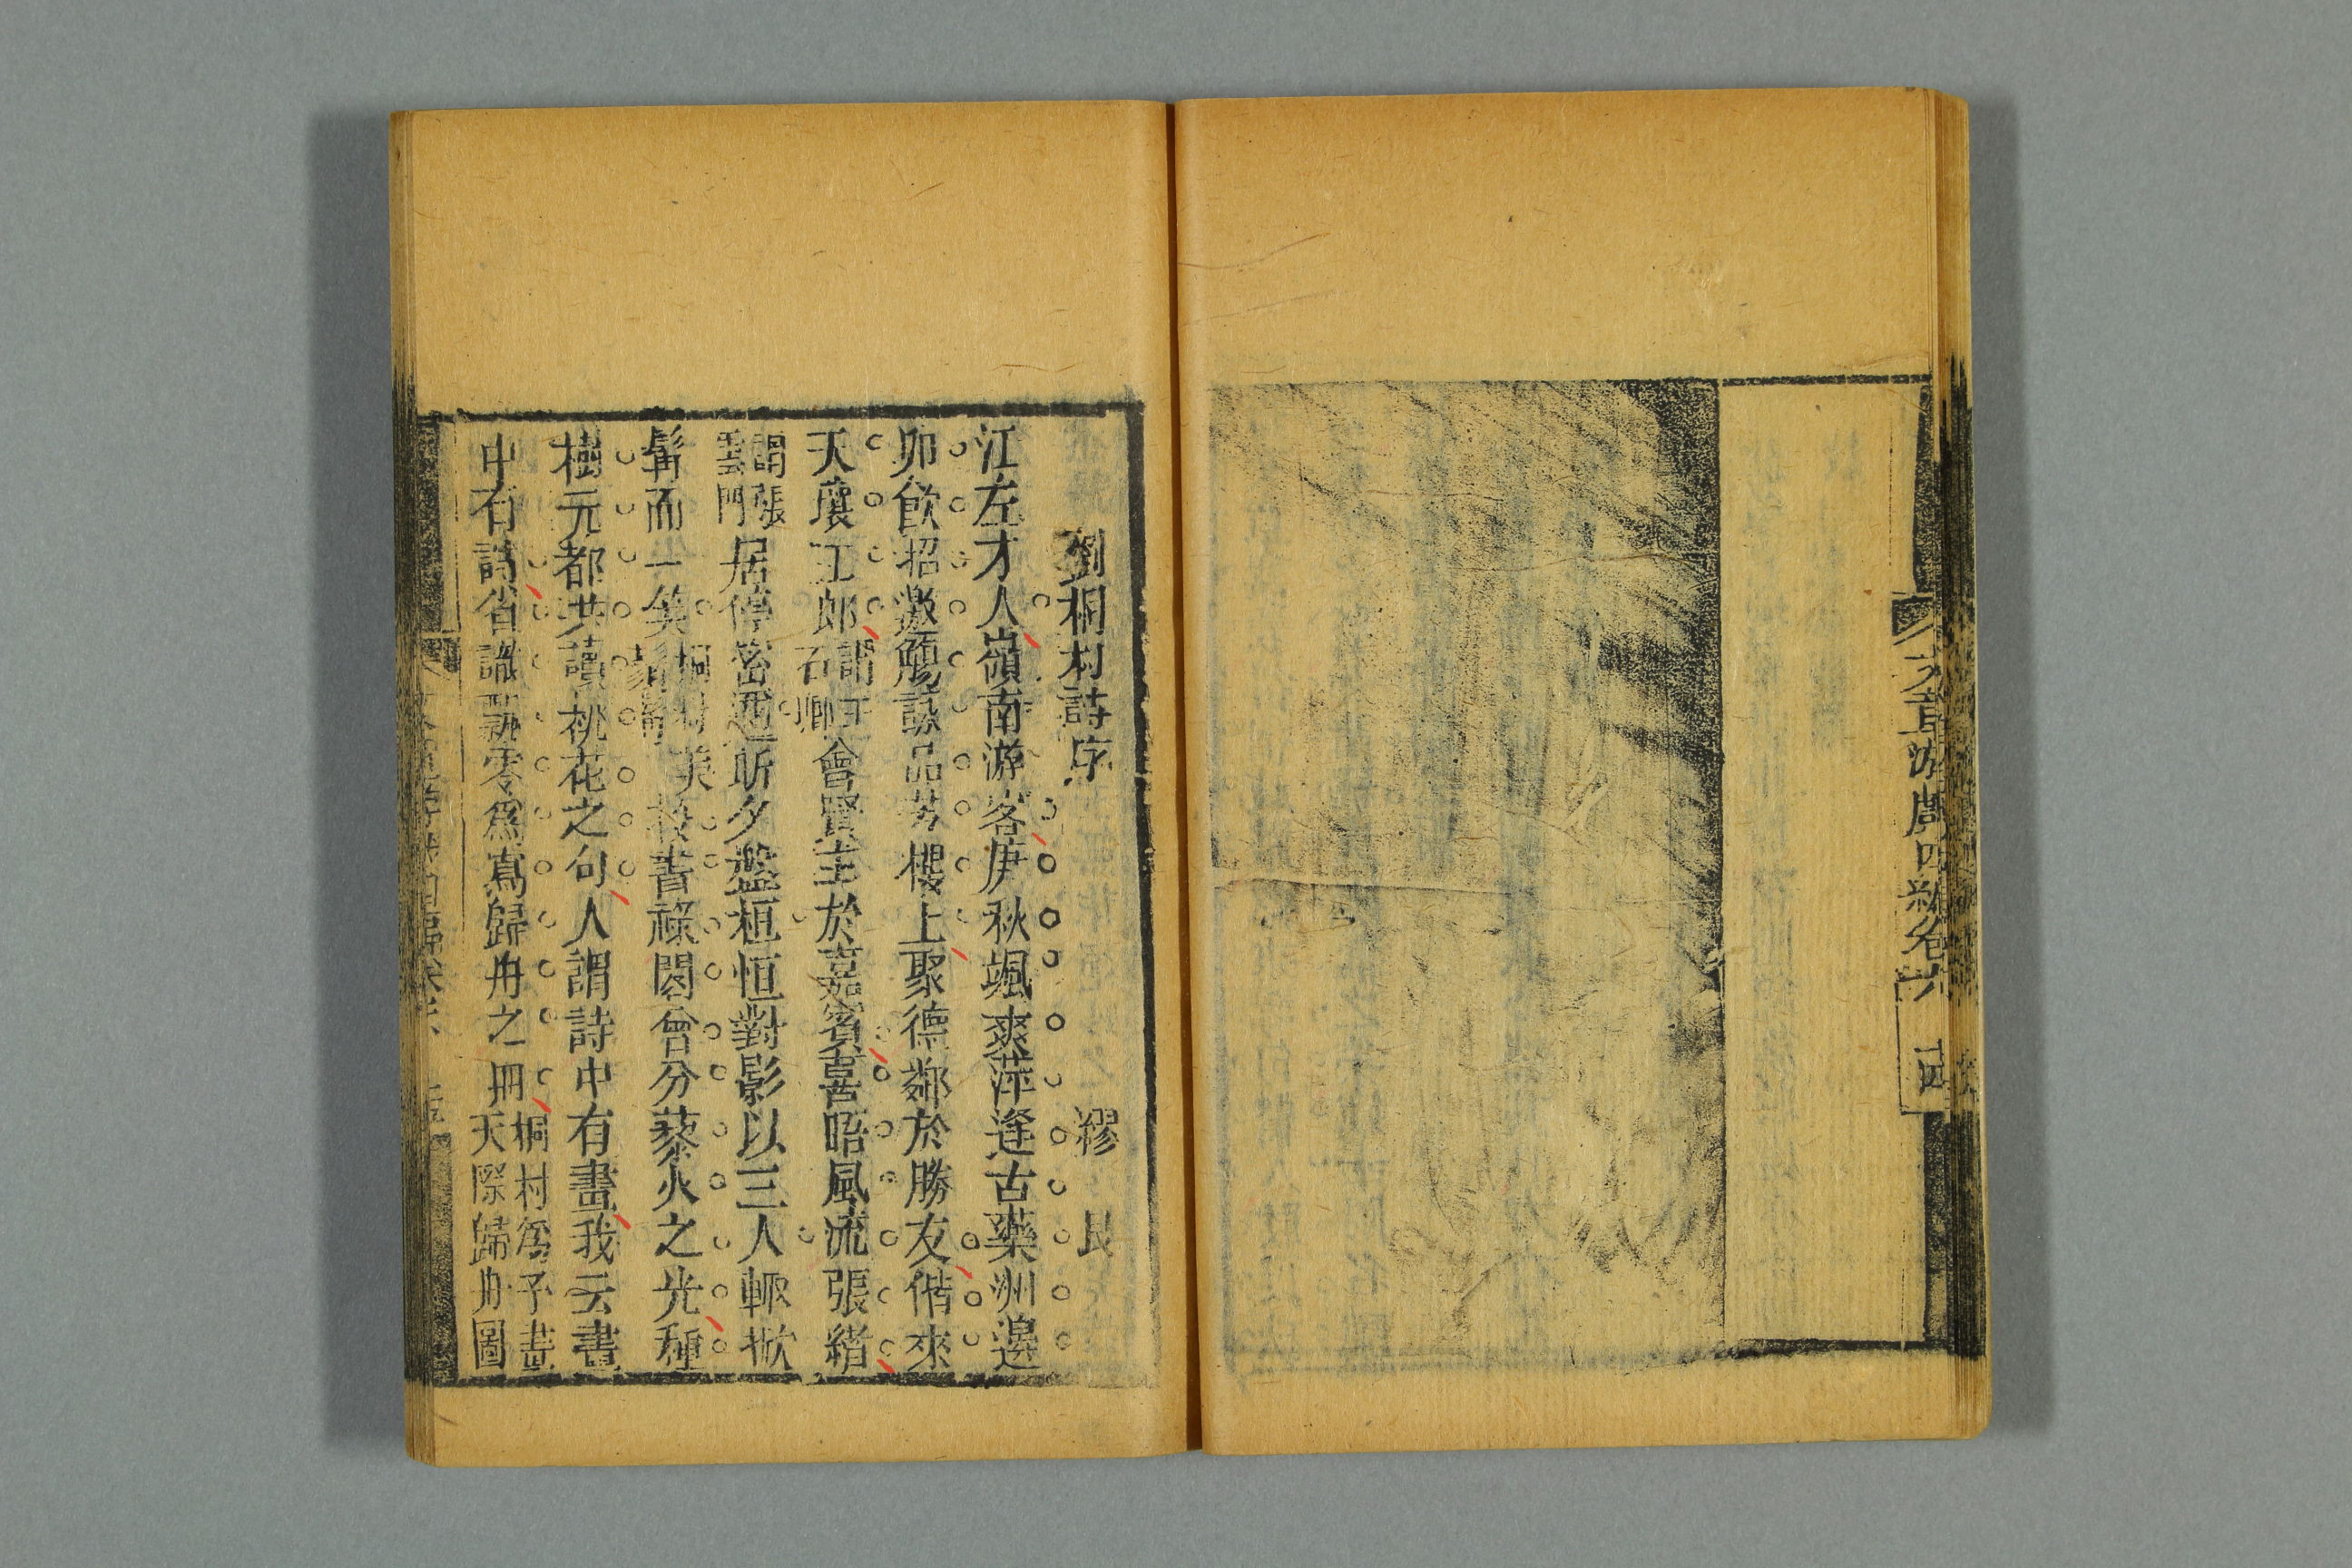 文章游戲四編卷六 十四
劉桐村詩序 繆艮
江左才人嶺南游客庚秋颯爽萍逢古藥洲邊
卯飲招邀觴詠品芳樓上聚德鄰於勝友偕來
天壤王郎謂王石卿會賢主於嘉賓喜晤風流張緒
謂張雲門居停密邇昕夕盤桓恒對影以三人輒掀
髯而一笑桐村美鬚髯校書祿閣曾分藜火之光種
樹元都共讀桃花之句人謂詩中有畫我云畫
中有詩省識飄零爲寫歸舟之冊桐村爲予畫天際歸舟圖